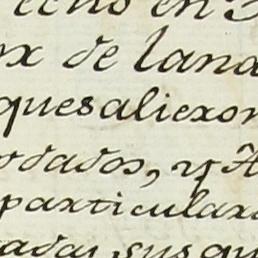 echo en 3
ox de lana
quesaliexon
odados, y A
particulaxe
adas sus qu